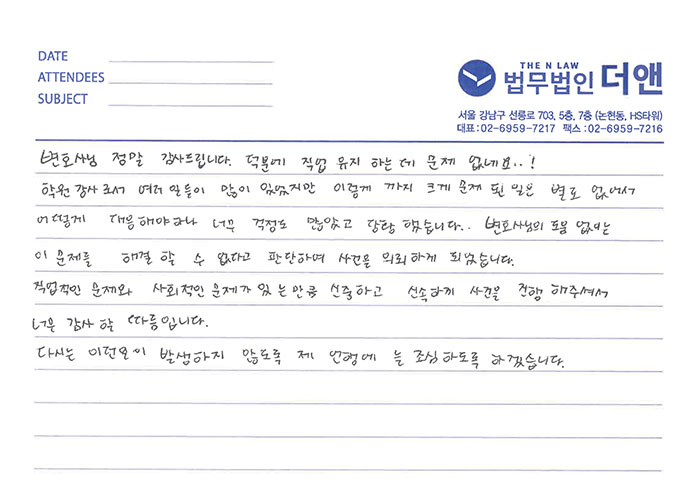 DATE
ATTENDEES
SUBJECT
THE N LAW
법무법인 더앤
서울 강남구 선릉로 703, 5층, 7층 (논현동, HS타워)
대표:02-6959-7217 팩스:02-6959-7216
변호사님 정말 감사드립니다. 덕분에 직업 유지 하는데 문제 없네요..!
학원강사로서 여러 일들이 많이 있었지만 이렇게 까지 크게 문제 된 일은 별로 없어서
어떻게 대응해야하나 너무 걱정도 많았고 당황 했습니다.. 변호사님의 도움 없이는
이 문제를 해결 할 수 없다고 판단하며 사건을 의뢰하게 되었습니다.
직업적인 문제와 사회적인 문제가 있는만큼 신중하고 신속하게 사건을 진행 해주셔서
너무 감사 할 따름입니다.
다시는 이런일이 발생하지 않도록 제 언행에 늘 조심하도록 하겠습니다.